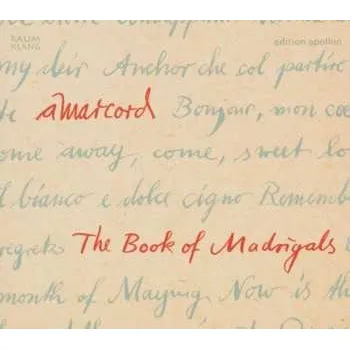 RAUM KLANG
edition apollon
my deir Anchor che col partire
amarcord Bonjour, mon coe
ome away, come, sweet lo
l bianco e dolce cigno Remembe
regrets The Book of Madrigals
month of Maying Now is th